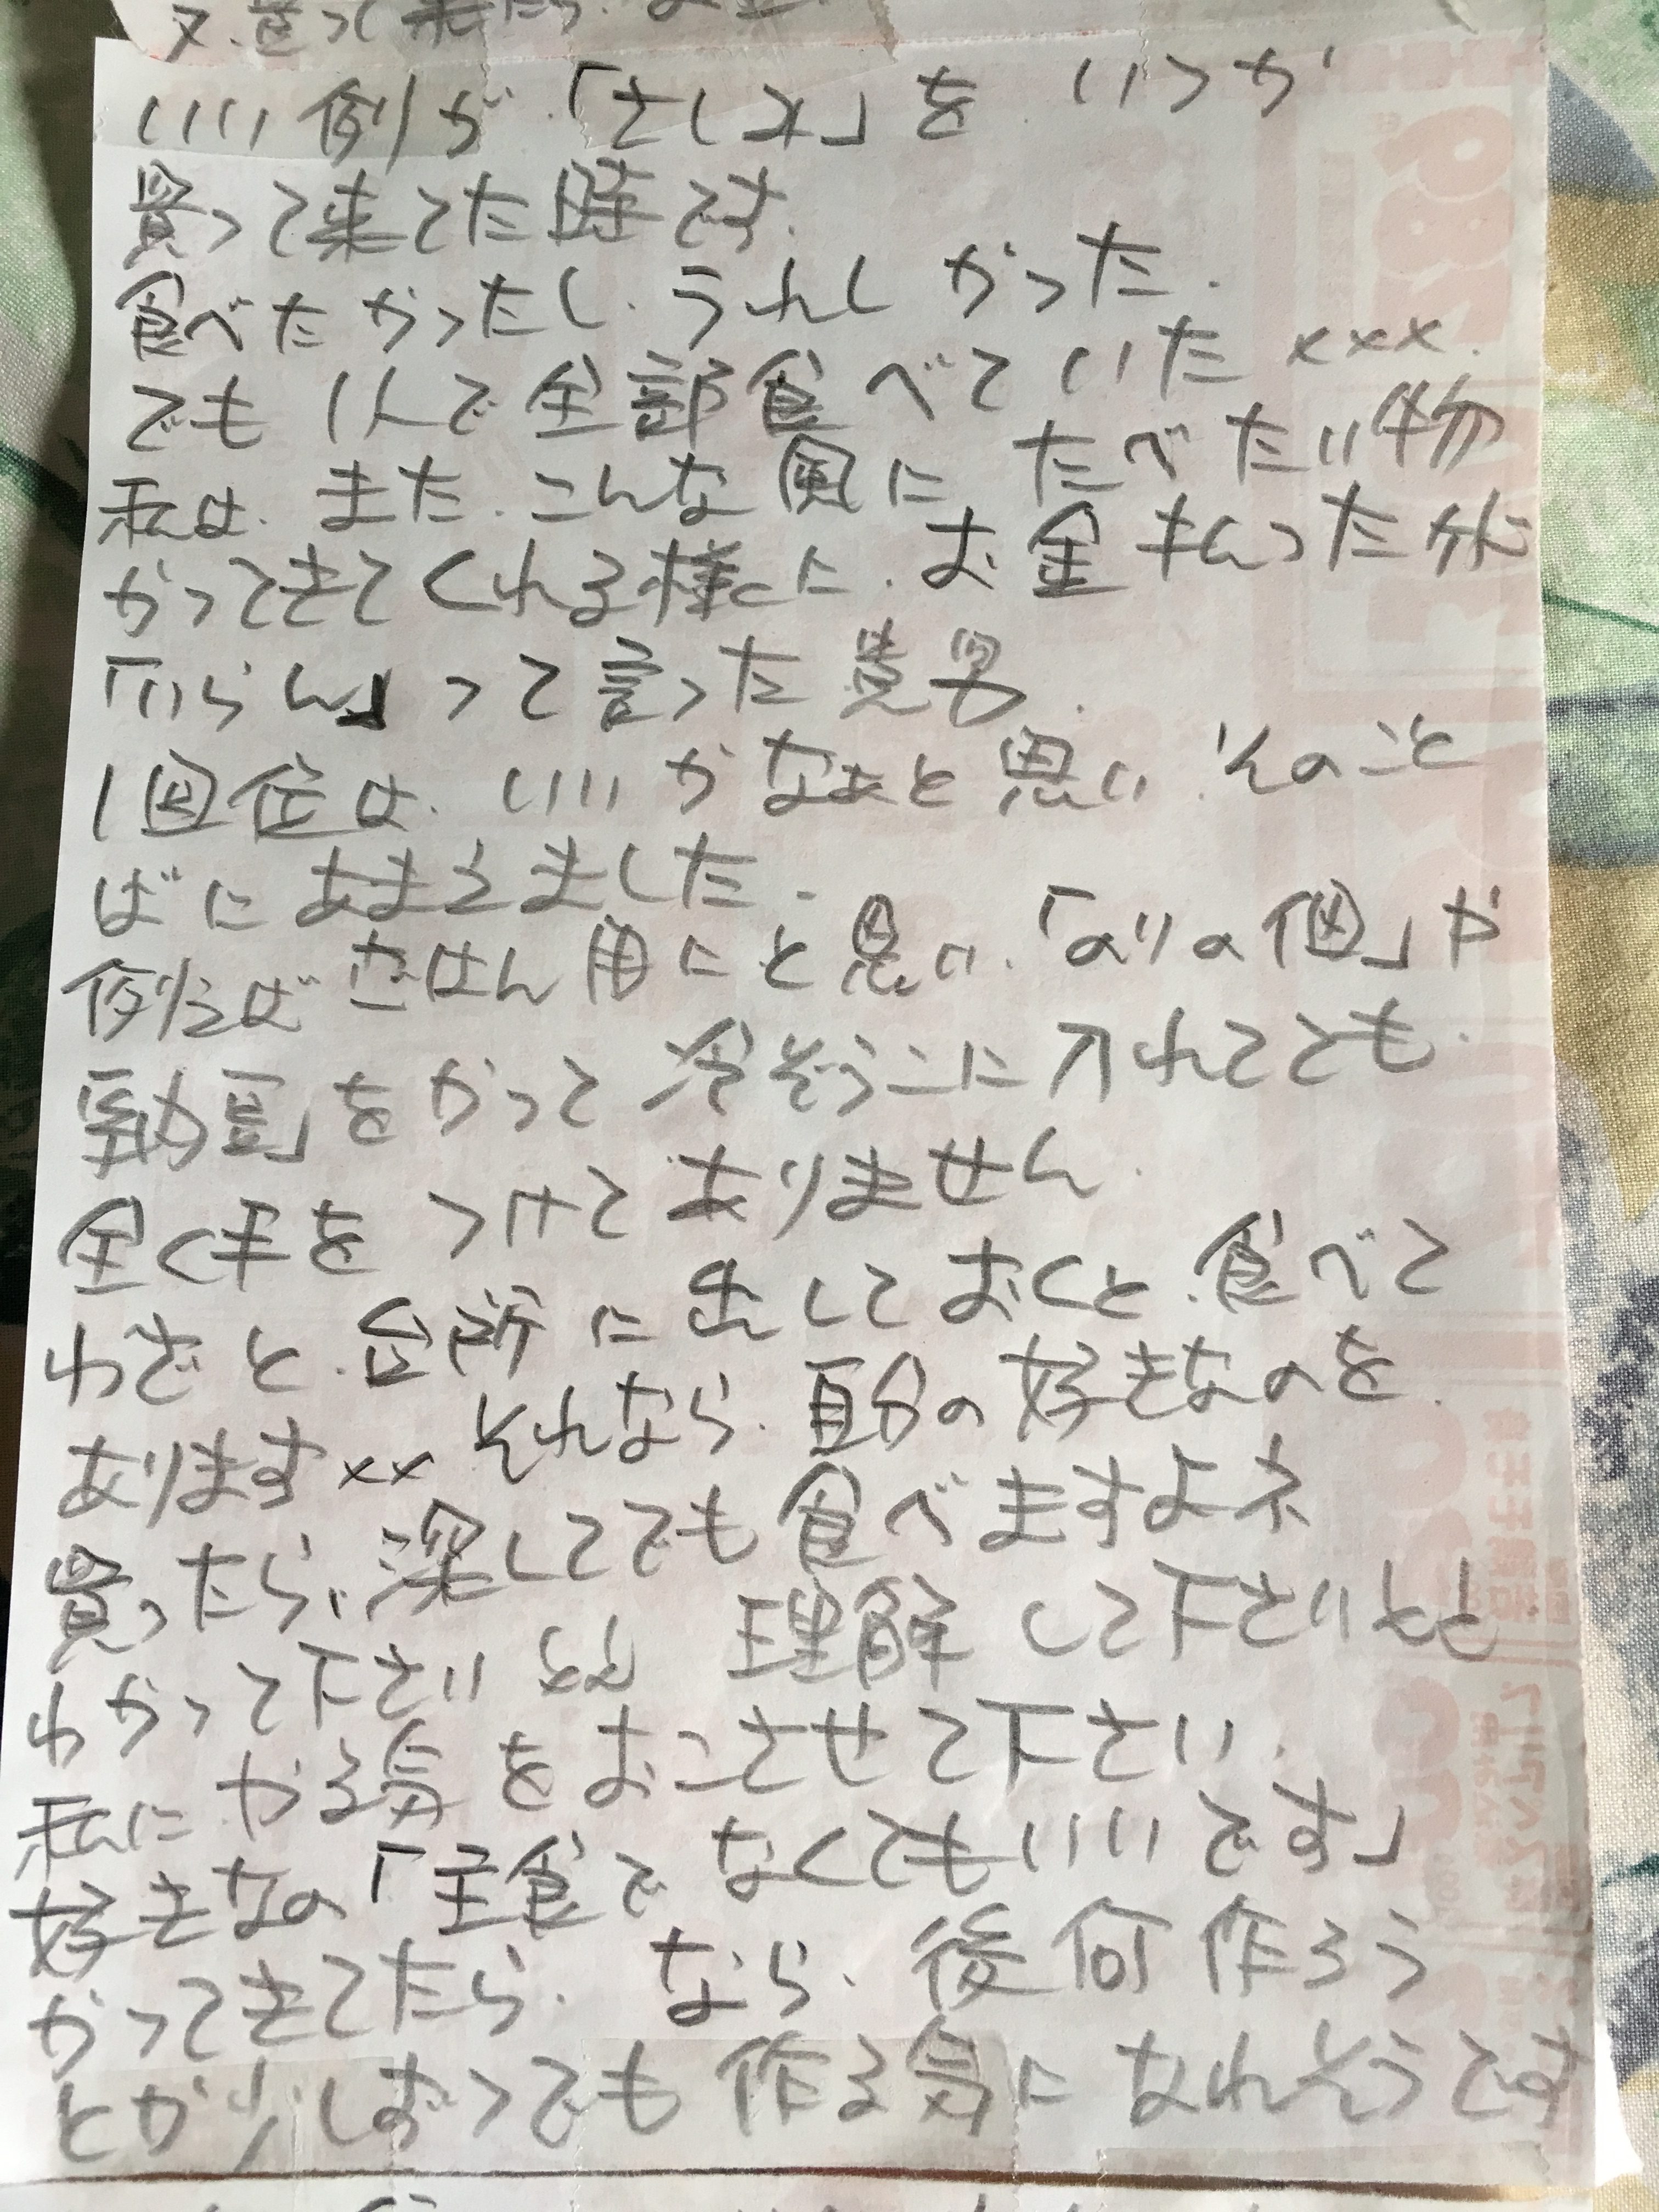 いい例が「さしみ」をいつか
買って来てた時です.
食べたかったし.うれしかった.
でも1人で全部食べていた×××.
私は.また.こんな風にたべたい物
かってきてくれる様にと.お金もらった外に
「いらん」って言った貴男.
1回位は.いいかなぁと思い.そのこと
ばにあまえました.
例えばごはん用にと思い.「のりの佃」や
「勤豆」をかって冷ぞうこに入れてても.
全く手をつけてありません.
わざと.台所に出しておくと.食べて
あります×× それなら.自分の好きなのを.
買ったら、深してでも食べますよネ
わかって下さい 理解して下さい
私にやる気をおこさせて下さい.
好きなの「主食でなくてもいいです」
かってきてたら.なら.後何作ろう
とか少しずつでも作る気になれそうです